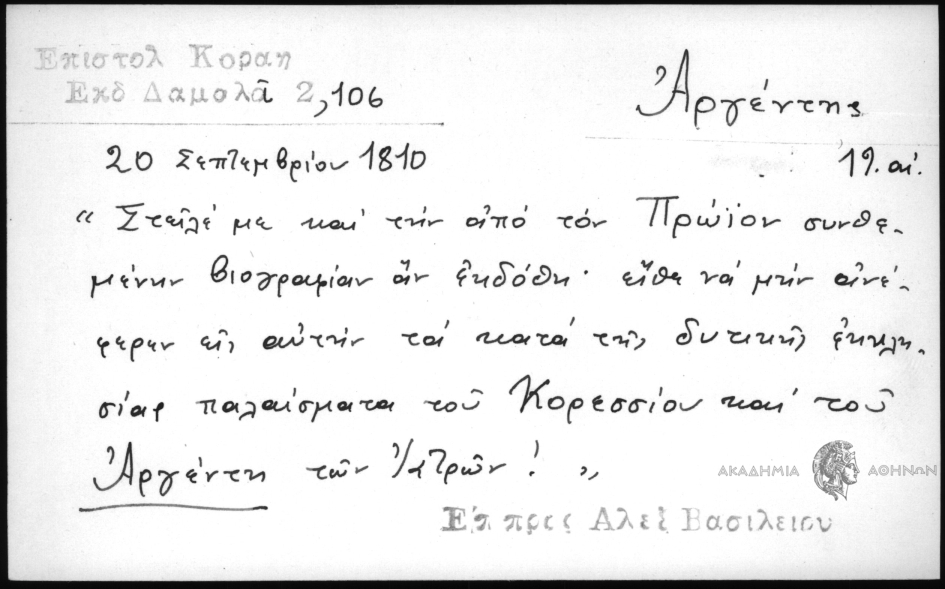 Επιστολ Κοραη
Εκδ Δαμολᾶ 2,106
Ἀργέντης
20 Σεπτεμβρίου 1810
19. αἰ.
“ Στεῖλέ με καὶ τὴν ἀπὸ τὸν Πρώϊον συνθε-
μένην βιογραφίαν ἂν ἐκδόθη· εἴθε νὰ μὴν ἀνέ-
φερεν εἰς αὐτὴν τὰ κατὰ τῆς δυτικῆς ἐκκλη-
σίας παλαίσματα τοῦ Κορεσσίου καὶ τοῦ
Ἀργέντη τῶν Ἰατρῶν! ”
ΑΚΑΔΗΜΙΑ ΑΘΗΝΩΝ
Επ προς Αλεξ Βασιλειου